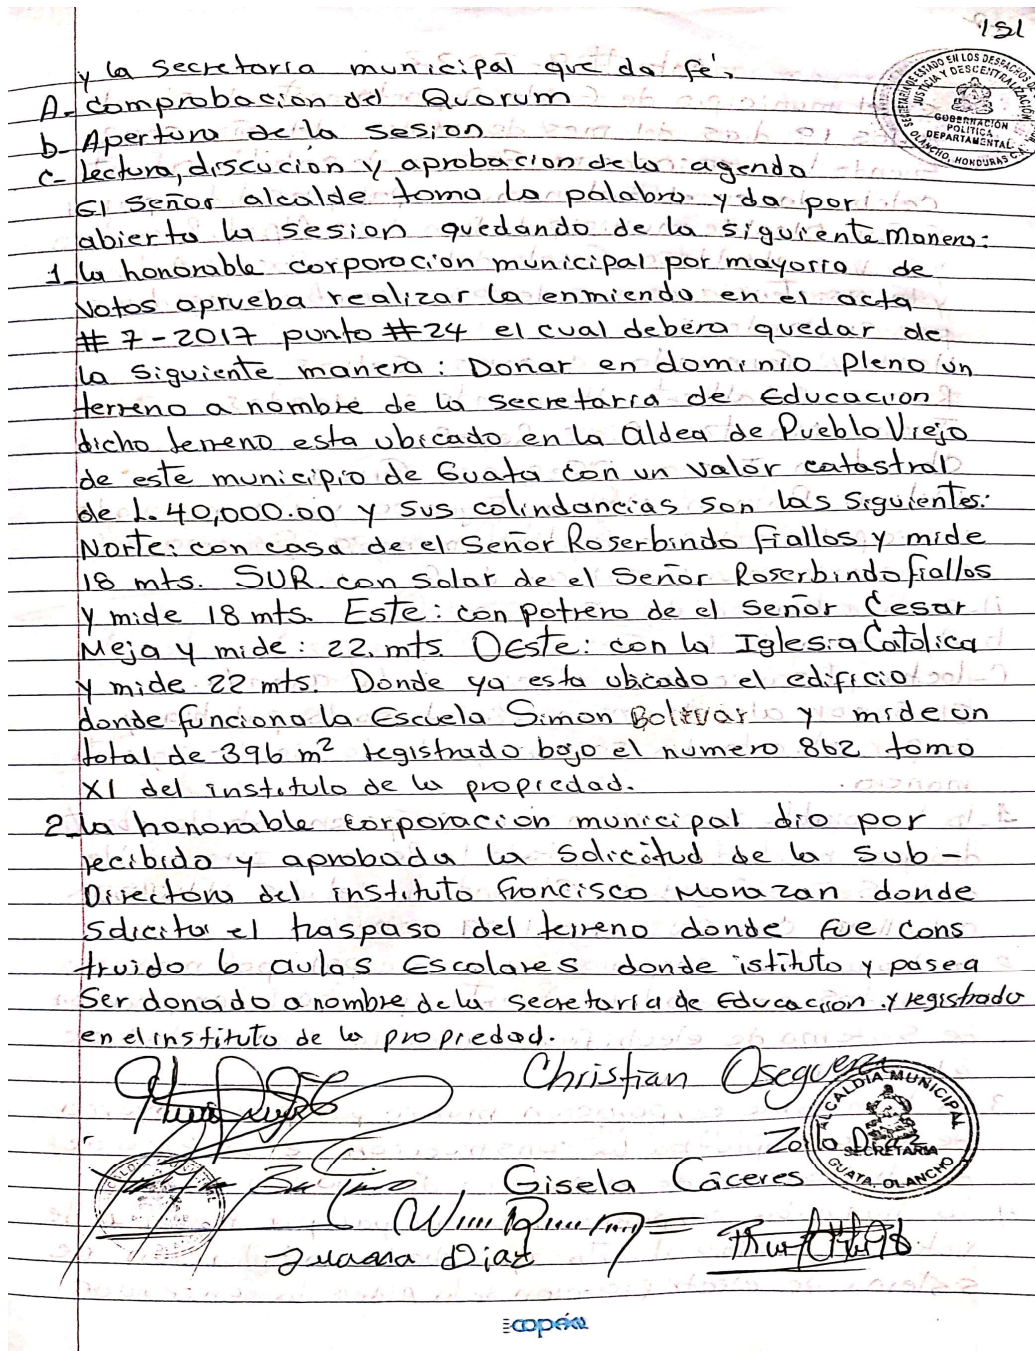 151
y la secretaria municipal que da fé,
A- Comprobacion del Quorum
b- Apertura de la sesion
c- lectura, discución y aprobacion de la agenda
El Señor alcalde toma la palabra y da por
abierta la sesion quedando de la siguiente Manera:
1- la honorable corporación municipal por mayoria de
Votos aprueba realizar la enmienda en el acta
# 7-2017 punto #24 el cual debera quedar de
la siguiente manera: Donar en dominio pleno un
terreno a nombre de la secretaria de Educación
dicho terreno esta ubicado en la aldea de Pueblo Viejo
de este municipio de Guata con un valor catastral
de L. 40,000.00 y sus colindancias son las siguientes:
Norte: con casa de el Señor Roserbindo fiallos y mide
18 mts. SUR. con solar de el Señor Roserbindo fiallos
y mide 18 mts. Este: con potrero de el señor Cesar
Meja y mide: 22. mts. Oeste: con la Iglesia Católica
y mide 22 mts. Donde ya esta ubicado el edificio
donde funciona la Escuela Simon Bolivar y mide un
total de 396 m² registrado bajo el numero 862 tomo
XI del instituto de la propiedad.
2- la honorable corporacion municipal dio por
recibido y aprobada la solicitud de la sub-
Directora del instituto francisco Morazan donde
Solicita el traspaso del terreno donde fue cons
truido 6 aulas Escolares donde istituto y pasea
Ser donado a nombre de la secretaria de Educación y registrado
en el instituto de la propiedad.
Christian Oseguera
Zoila Diaz
Gisela Cáceres
Juana Diaz
SECRETARIA DE ESTADO EN LOS DESPACHOS DE
JUSTICIA Y DESCENTRALIZACIÓN
GOBERNACIÓN
POLÍTICA
DEPARTAMENTAL
OLANCHO, HONDURAS C.A.
ALCALDIA MUNICIPAL
SECRETARIA
GUATA, OLANCHO
copán